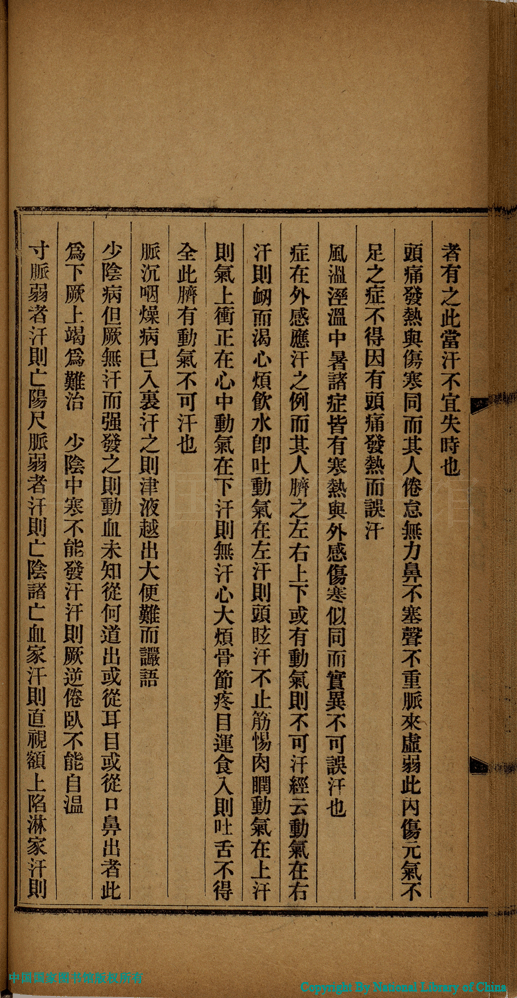 者有之此當汗不宜失時也
頭痛發熱與傷寒同而其人倦怠無力鼻不塞聲不重脈來虛弱此內傷元氣不
足之症不得因有頭痛發熱而誤汗
風溫溼溫中暑諸症皆有寒熱與外感傷寒似同而實異不可誤汗也
症在外感應汗之例而其人臍之左右上下或有動氣則不可汗經云動氣在右
汗則衂而渴心煩飲水卽吐動氣在左汗則頭眩汗不止筋惕肉瞤動氣在上汗
則氣上衝正在心中動氣在下汗則無汗心大煩骨節疼目運食入則吐舌不得
全此臍有動氣不可汗也
脈沉咽燥病已入裏汗之則津液越出大便難而讝語
少陰病但厥無汗而强發之則動血未知從何道出或從耳目或從口鼻出者此
爲下厥上竭爲難治 少陰中寒不能發汗汗則厥逆倦臥不能自溫
寸脈弱者汗則亡陽尺脈弱者汗則亡陰諸亡血家汗則直視額上陷淋家汗則
中国国家图书馆版权所有
Copyright By National Library of China